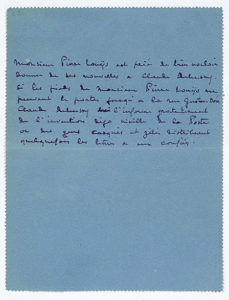 Monsieur Pierre Louÿs est prié de bien vouloir
donner de ses nouvelles à Claude Debussy.
Si les pieds de Monsieur Pierre Louÿs ne
peuvent le porter jusqu'à la rue Gustave Doré
Claude Debussy l'informe gratuitement
de l'invention déjà vieille de la Poste
où des gens casqués et gelés distribuent
quelquefois les lettres à un